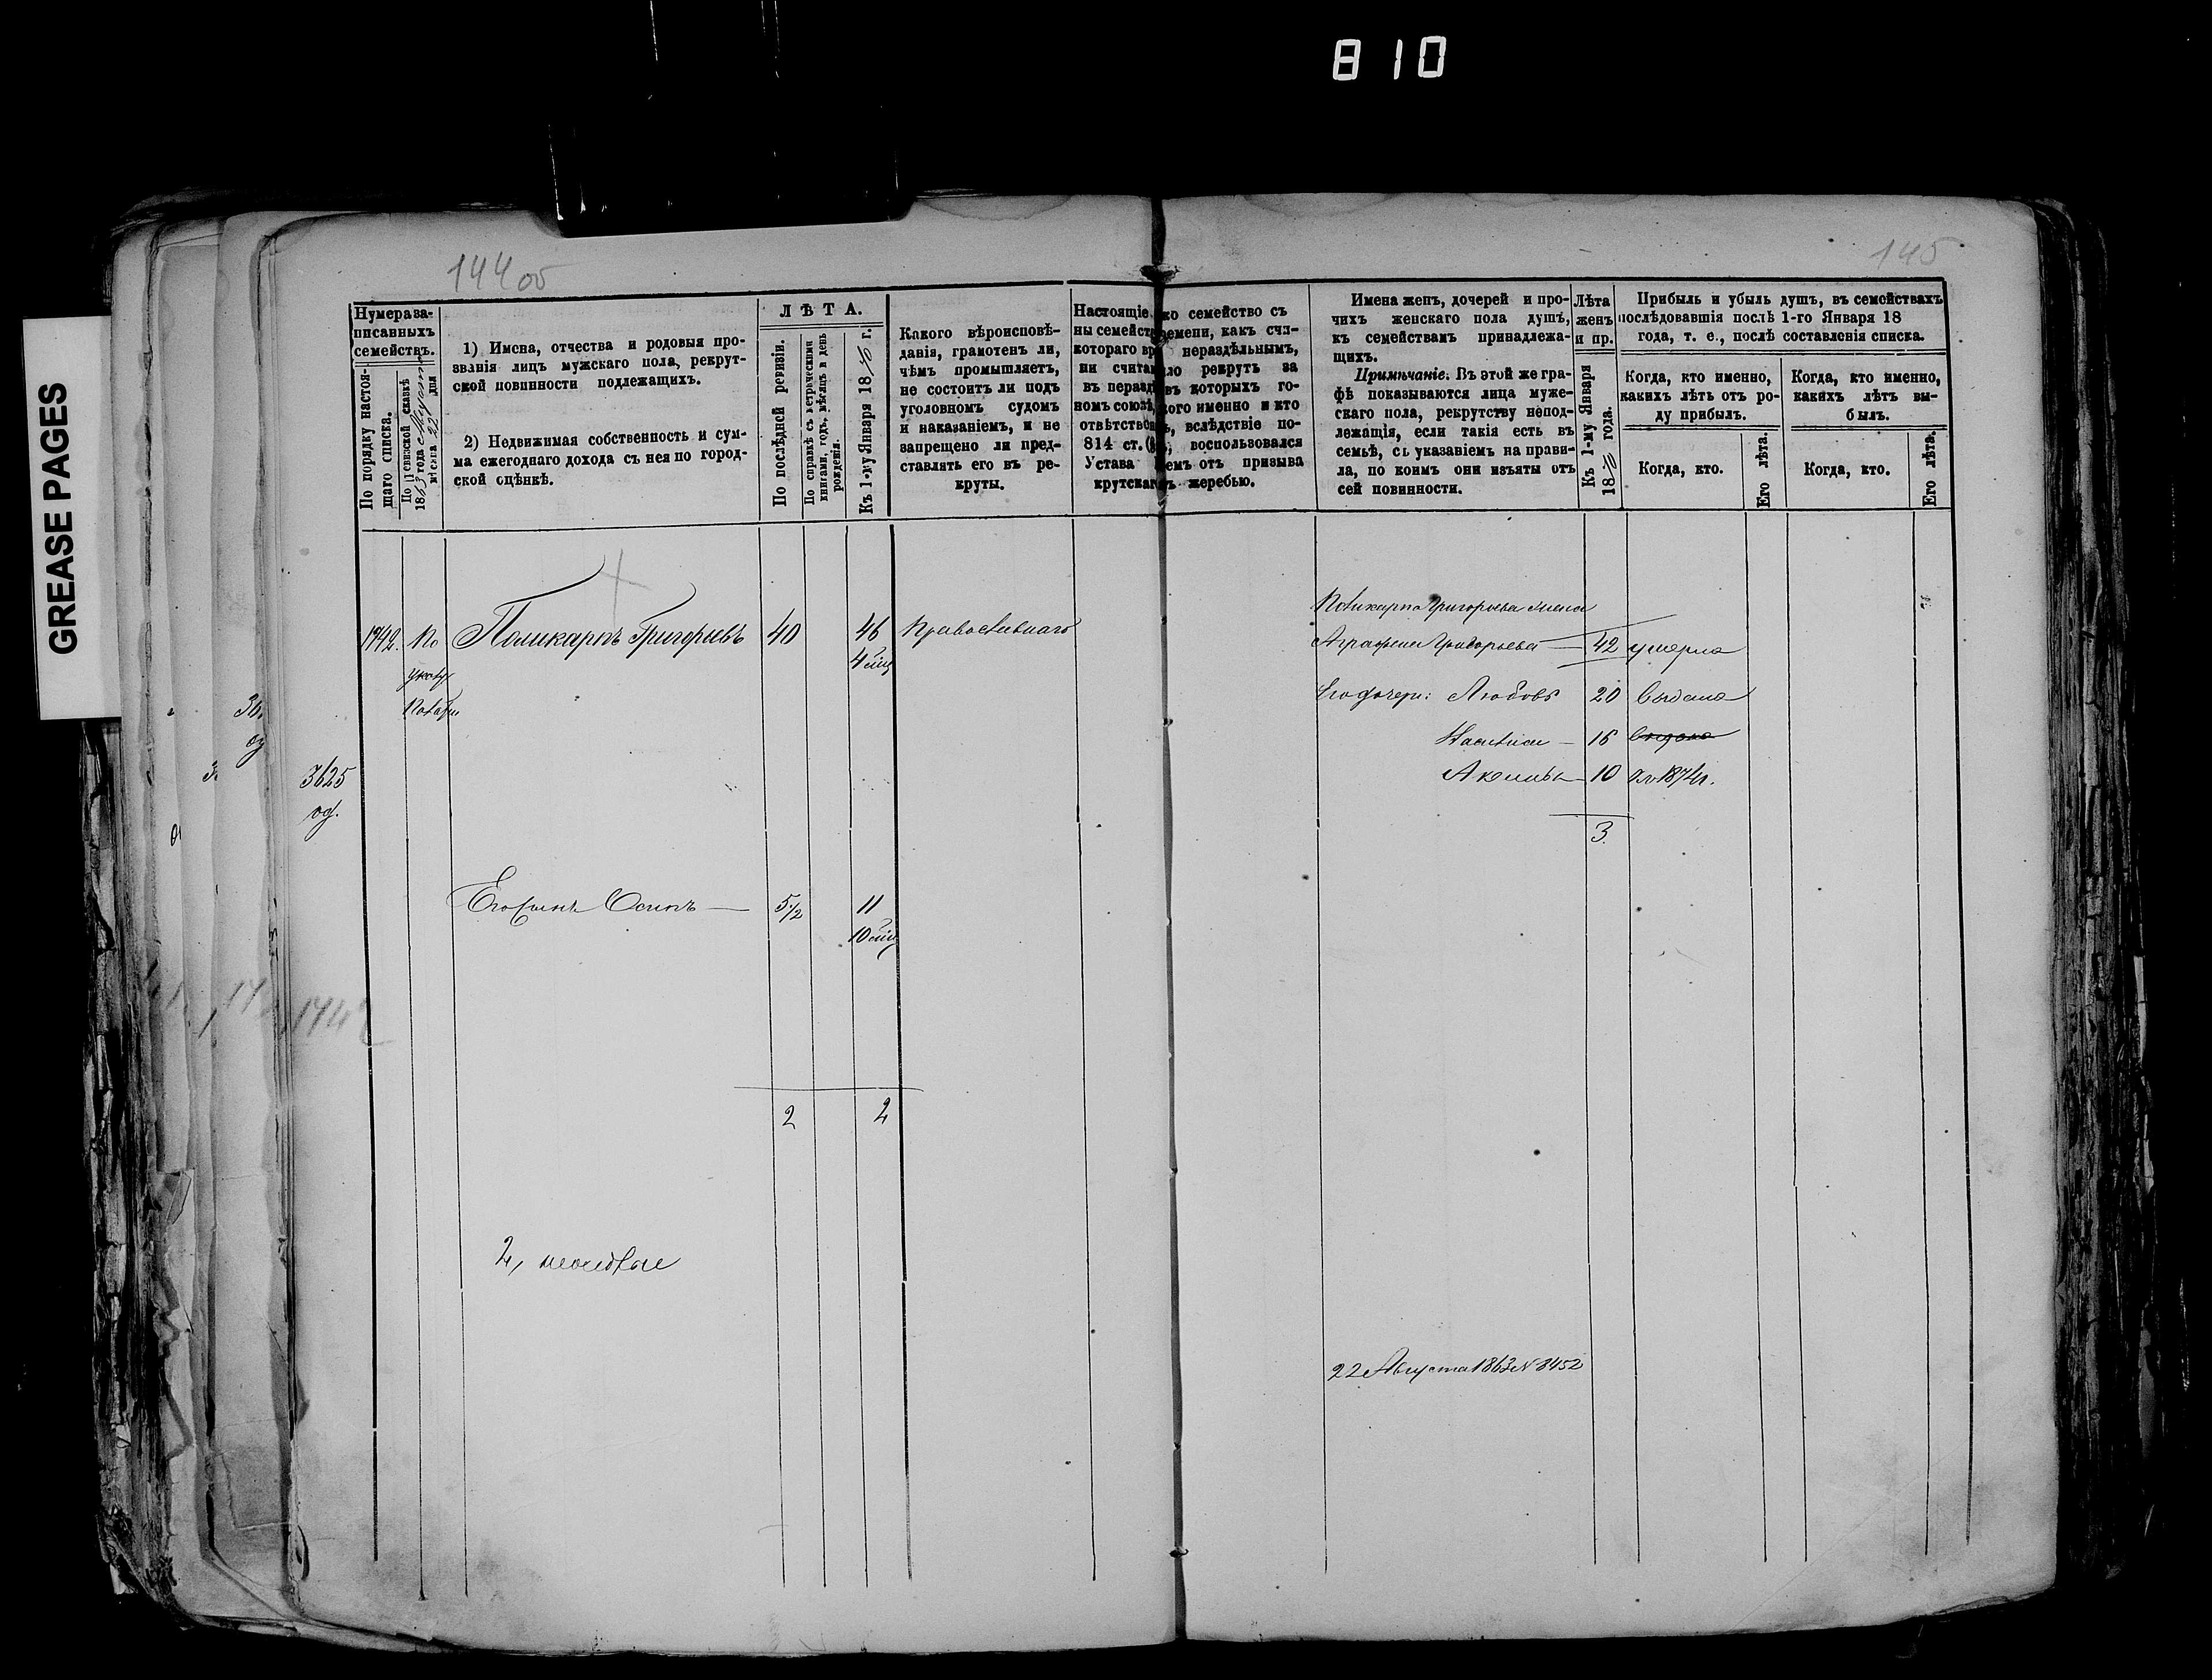 810
GREASE PAGES
144 об
145
Нумера за-
писанныхъ
семействъ.
По порядку настоя-
щаго списка.
По ревизской сказкѣ
1863 года Августа
мѣсяца 22 дня
1) Имена, отчества и родовыя про-
званія лицъ мужскаго пола, рекрут-
ской повинности подлежащихъ.
2) Недвижимая собственность и сум-
ма ежегоднаго дохода съ нея по город-
ской оцѣнкѣ.
ЛѢТА.
По послѣдней ревизіи.
По справкѣ съ метрическими
книгами, годъ, мѣсяцъ и день
рожденія.
Къ 1-му Января 1870 г.
Какого вѣроисповѣ-
данія, грамотенъ ли,
чѣмъ промышляетъ,
не состоитъ ли подъ
уголовнымъ судомъ
и наказаніемъ, и не
запрещено ли пред-
ставлять его въ ре-
круты.
Настоящіе
ны семейст
котораго вр
ни счита
въ нераз
номъ союз
отвѣтств
814 ст.
Устава
крутскаг
ко семейство съ
ремени, какъ счи-
нераздѣльнымъ,
ло рекрутъ за
въ которыхъ го-
кого именно и кто
ъ, вслѣдствіе по-
воспользовался
емъ отъ призыва
ъ жеребью.
Имена женъ, дочерей и про-
чихъ женскаго пола душъ,
къ семействамъ принадлежа-
щихъ.
Примѣчаніе. Въ этой же гра-
фѣ показываются лица муже-
скаго пола, рекрутству непод-
лежащія, если такія есть въ
семьѣ, съ указаніемъ на прави-
ла, по коимъ они изъяты отъ
сей повинности.
Лѣта
женъ
и пр.
Къ 1-му Января
1870 года.
Прибыль и убыль душъ, въ семействахъ
послѣдовавшія послѣ 1-го Января 18
года, т. е., послѣ составленія списка.
Когда, кто именно,
какихъ лѣтъ отъ ро-
ду прибылъ.
Когда, кто именно,
какихъ лѣтъ вы-
былъ.
Когда, кто.
Его лѣта.
Когда, кто.
Его лѣта.
Поликарпа Григорьева жена
1742. По Поликарпъ Григорьевъ 40 46 Православнаго
4 мѣц
указу
Палаты
Аграфена Григорьева — 42 умерла
Его дочери: Любовь 20 выдана
Настасья — 16 выдана
Акулина — 10 1874 г.
3.
3625
об.
Его сынъ Осипъ — 5 1/2 11
10 мѣц
1742
2 2
2,
22 Августа 1863 N 3452